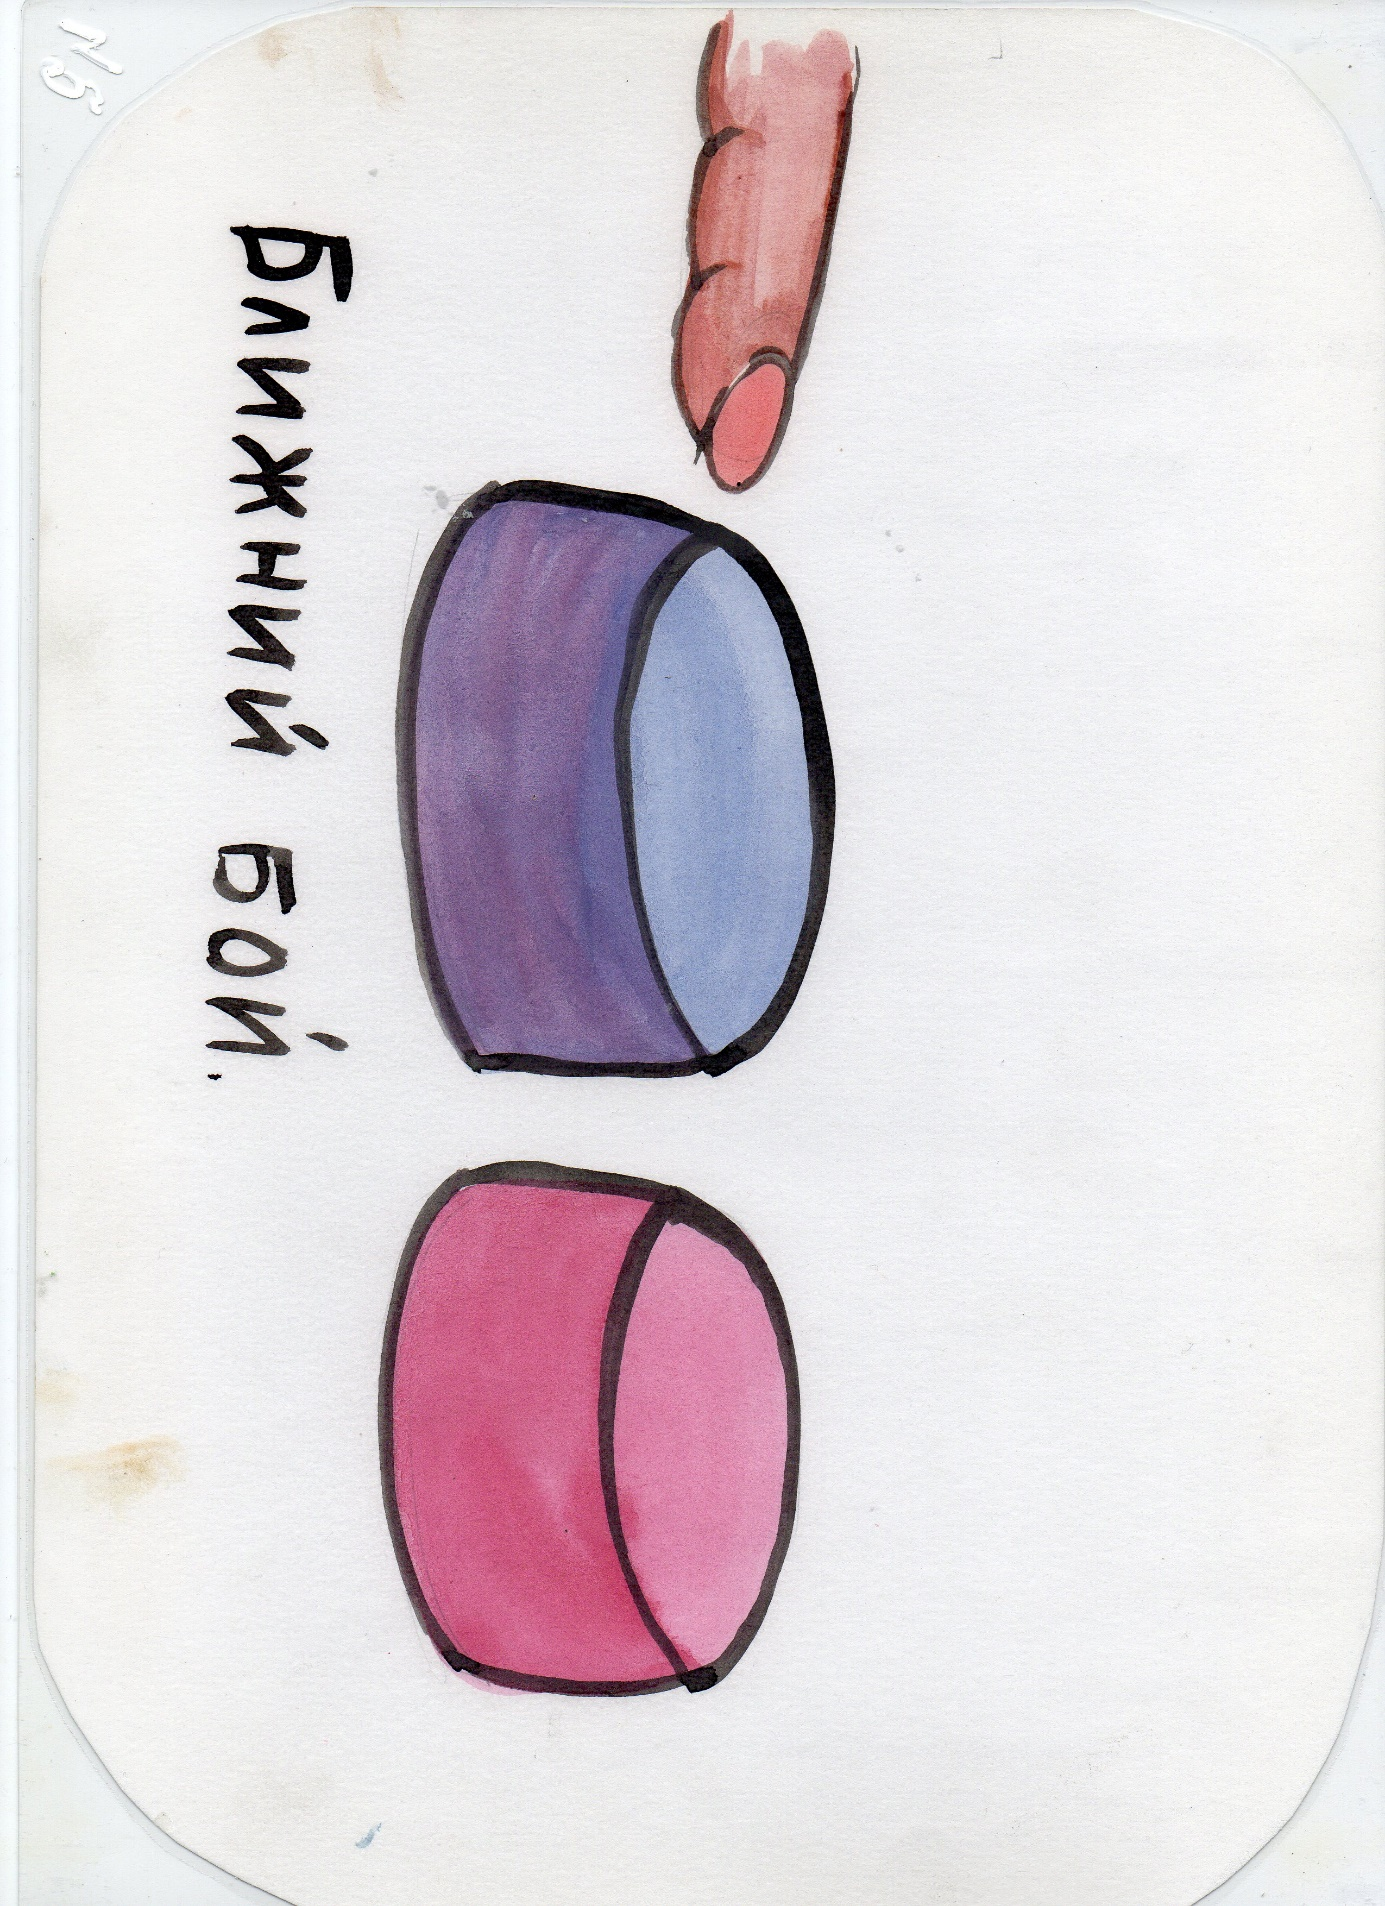 №5
Ближний бой.